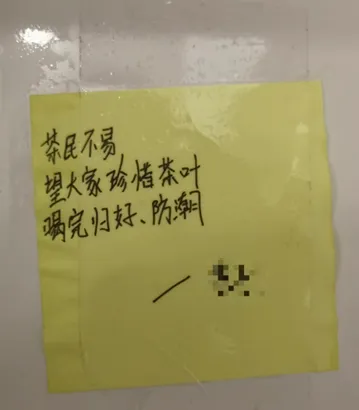 茶民不易
望大家珍惜茶叶
喝完归好、防潮